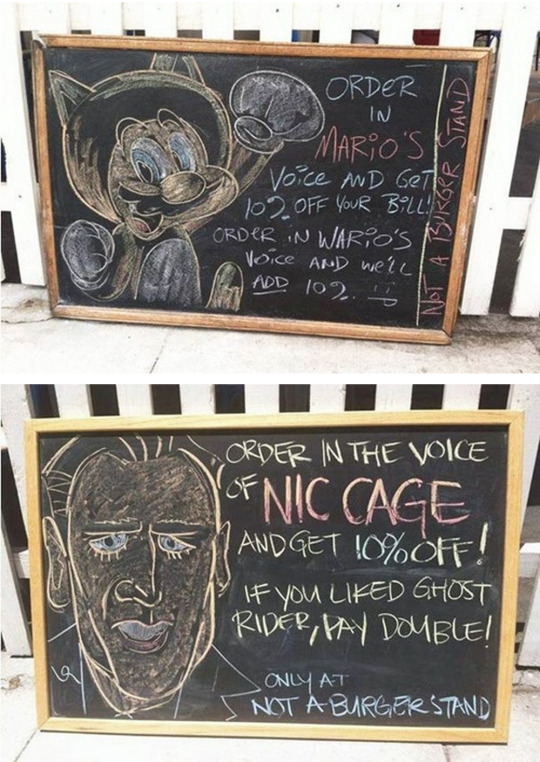 ORDER
IN
MARIO'S
VOICE AND GET
10% OFF YOUR BILL!
ORDER IN WARIO'S
VOICE AND WE'LL
ADD 10%. :)
NOT A BURGER STAND
ORDER IN THE VOICE
OF NIC CAGE
AND GET 10% OFF!
IF YOU LIKED GHOST
RIDER, PAY DOUBLE!
ONLY AT
NOT A BURGER STAND